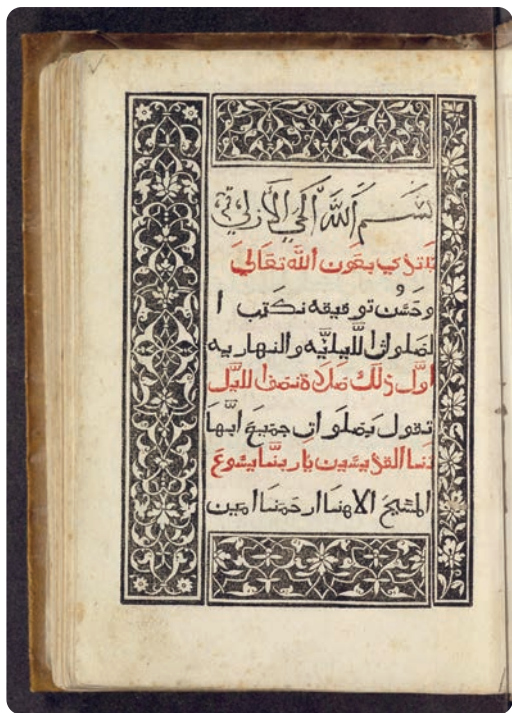 بسم الله الحي الأزلي
نبتدي بعون الله تعالي
وحسن توفيقه نكتب ا
لصلوات الليليه والنهاريه
اول ذلك صلاة نصف الليل
تقول بصلوات جميع ابها
تنا القديسين ياربنا يسوع
المسيح الاهنا ارحمنا امين